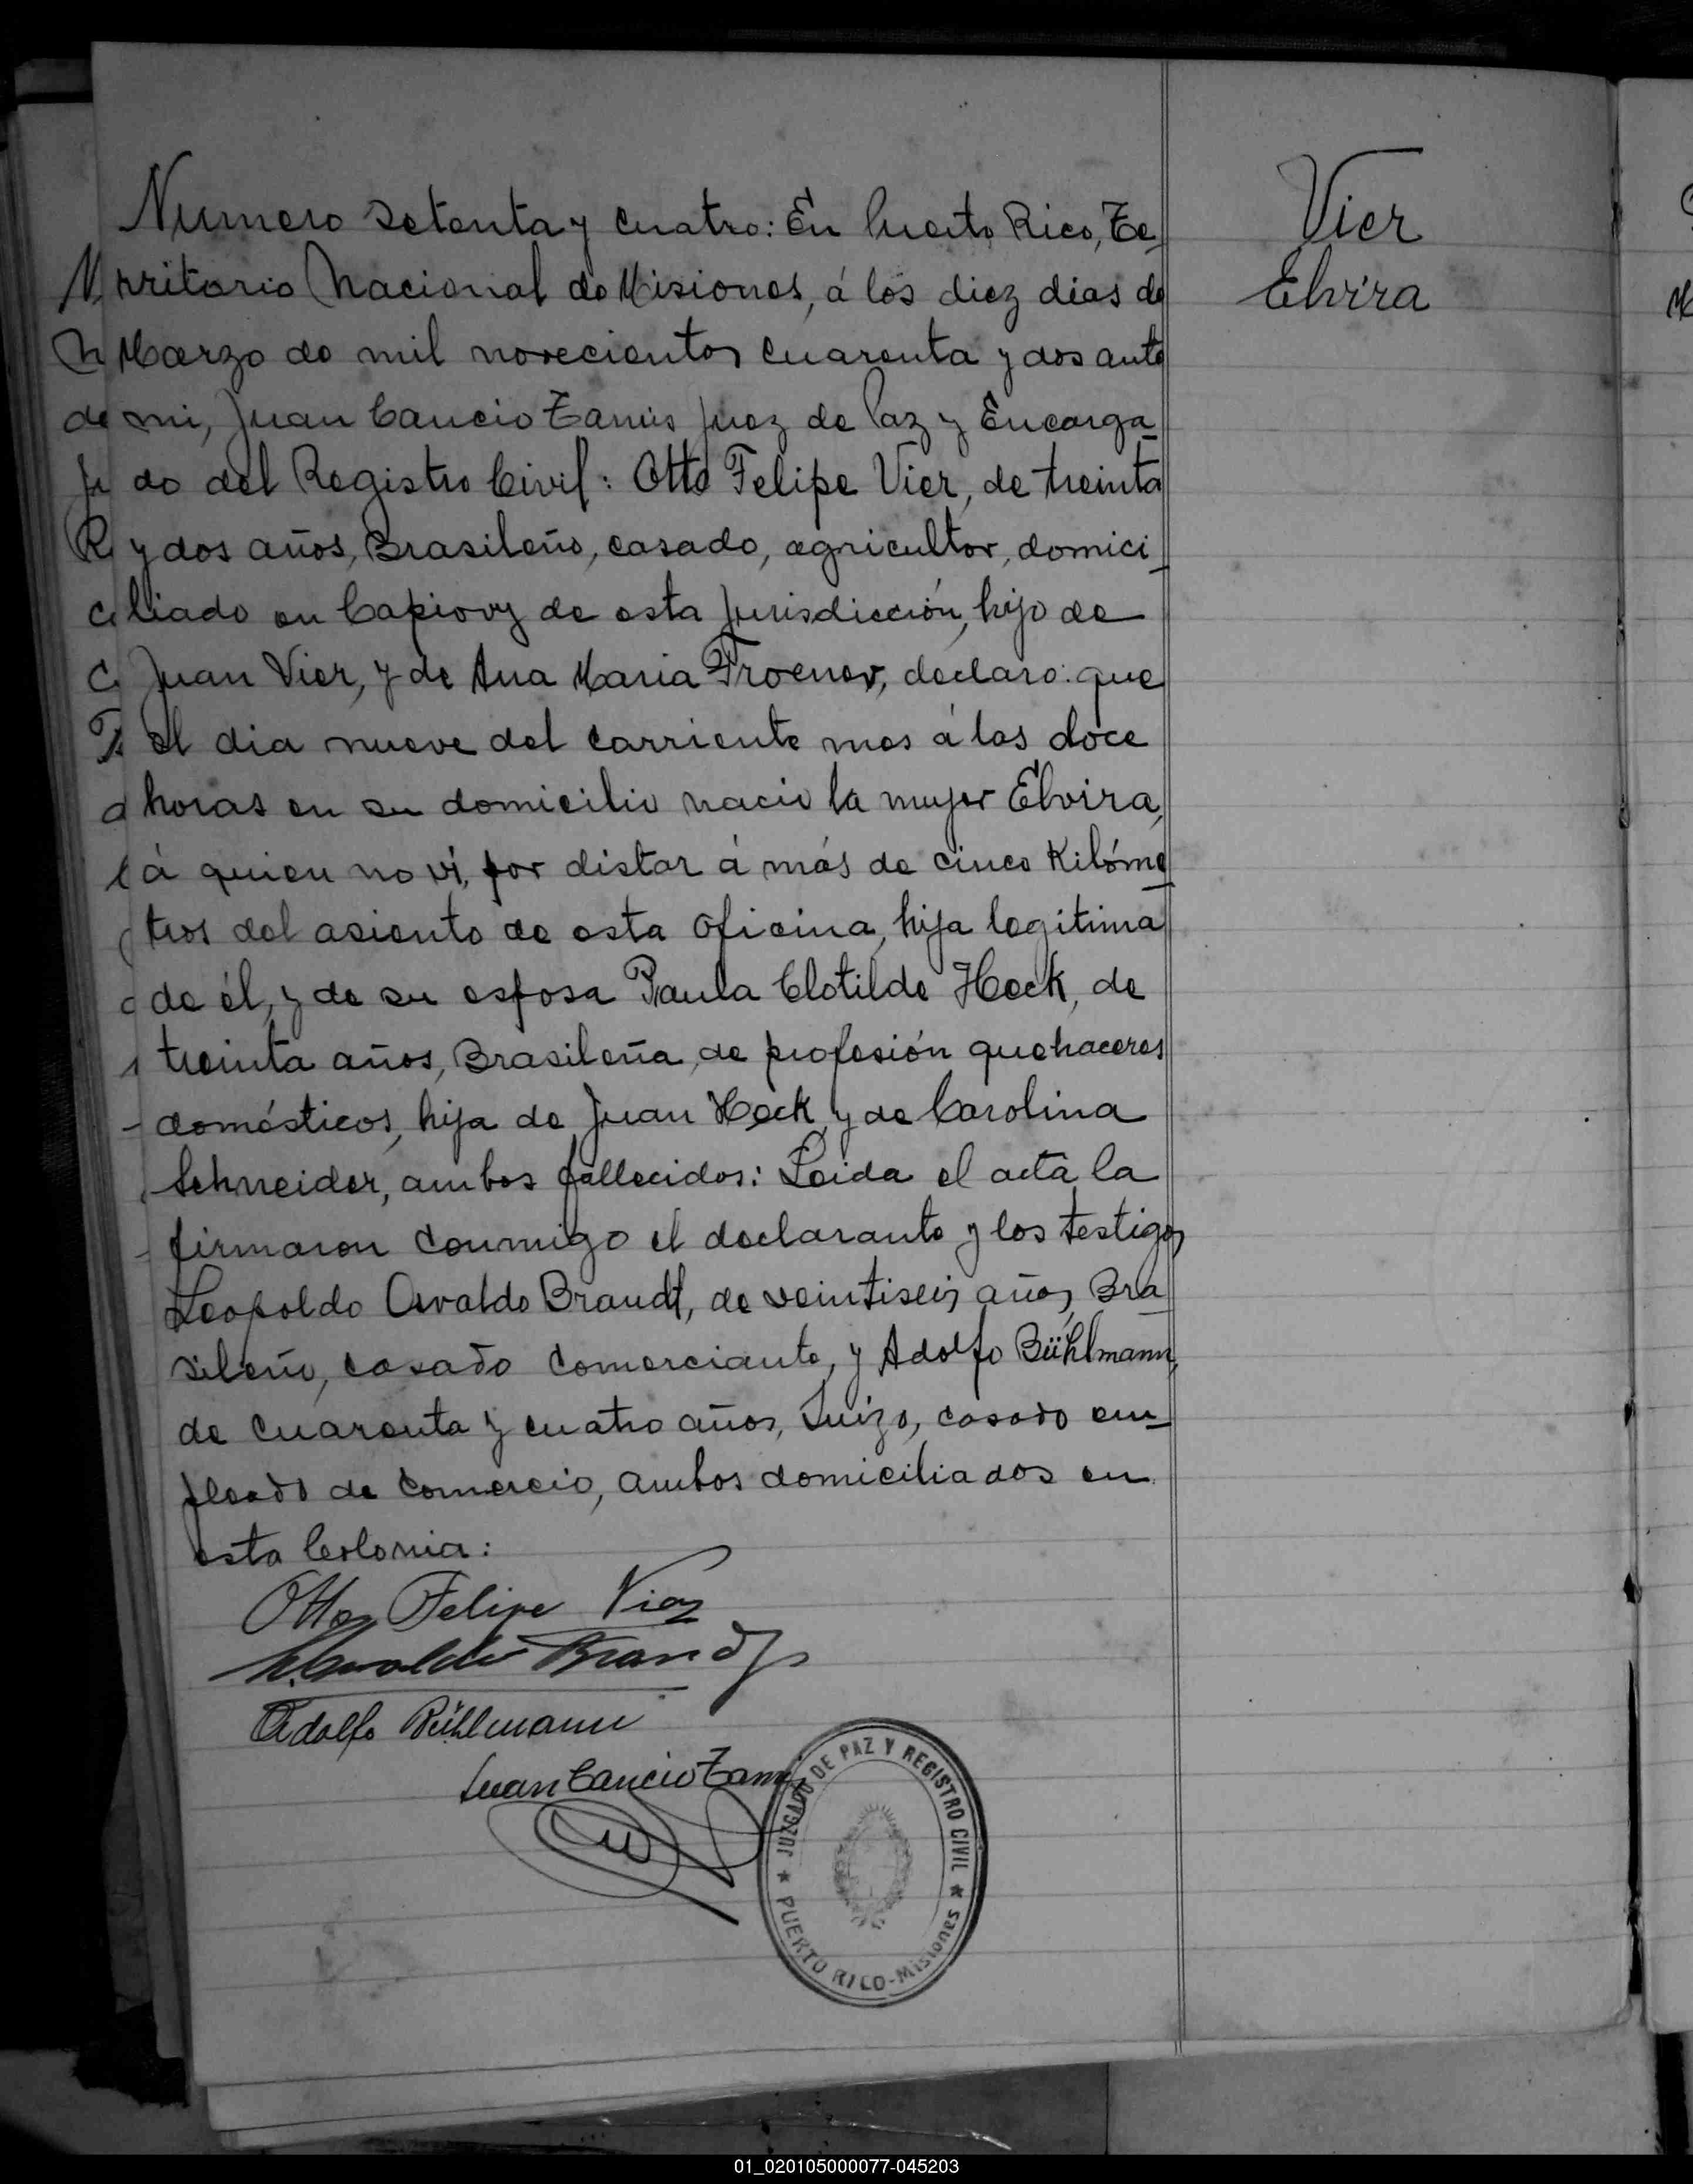 Numero setenta y cuatro: En Puerto Rico, Te
rritorio Nacional de Misiones, á los diez dias de
Marzo de mil novecientos cuarenta y dos ante
mi, Juan Cancio Zamis Juez de Paz y Encarga
do del Registro Civil: Otto Felipe Vier, de treinta
y dos años, Brasileño, casado, agricultor, domici
liado en Capiovy de esta Jurisdicción, hijo de
Juan Vier, y de Ana Maria Froener, declaro: que
el dia nueve del corriente mes á las doce
horas en su domicilio nacio la mujer Elvira,
á quien no ví, por distar á más de cinco Kilóme
tros del asiento de esta oficina, hija legitima
de él, y de su esposa Paula Clotilde Heck, de
treinta años, Brasileña, de profesión quehaceres
domésticos, hija de Juan Heck, y de Carolina
Schneider, ambos fallecidos: Leida el acta la
firmaron conmigo el declarante y los testigos
Leopoldo Osvaldo Brandt, de veintiseis años, Bra
sileño, casado comerciante, y Adolfo Bühlmann,
de cuarenta y cuatro años, Suizo, casado em
pleado de comercio, ambos domiciliados en
esta Colonia:
Otto Felipe Vier
L. Osvaldo Brandt
Adolfo Bühlmann
Juan Cancio Zamis
JUZGADO DE PAZ Y REGISTRO CIVIL
★ PUERTO RICO-Misiones ★
Vier
Elvira
01_020105000077-045203